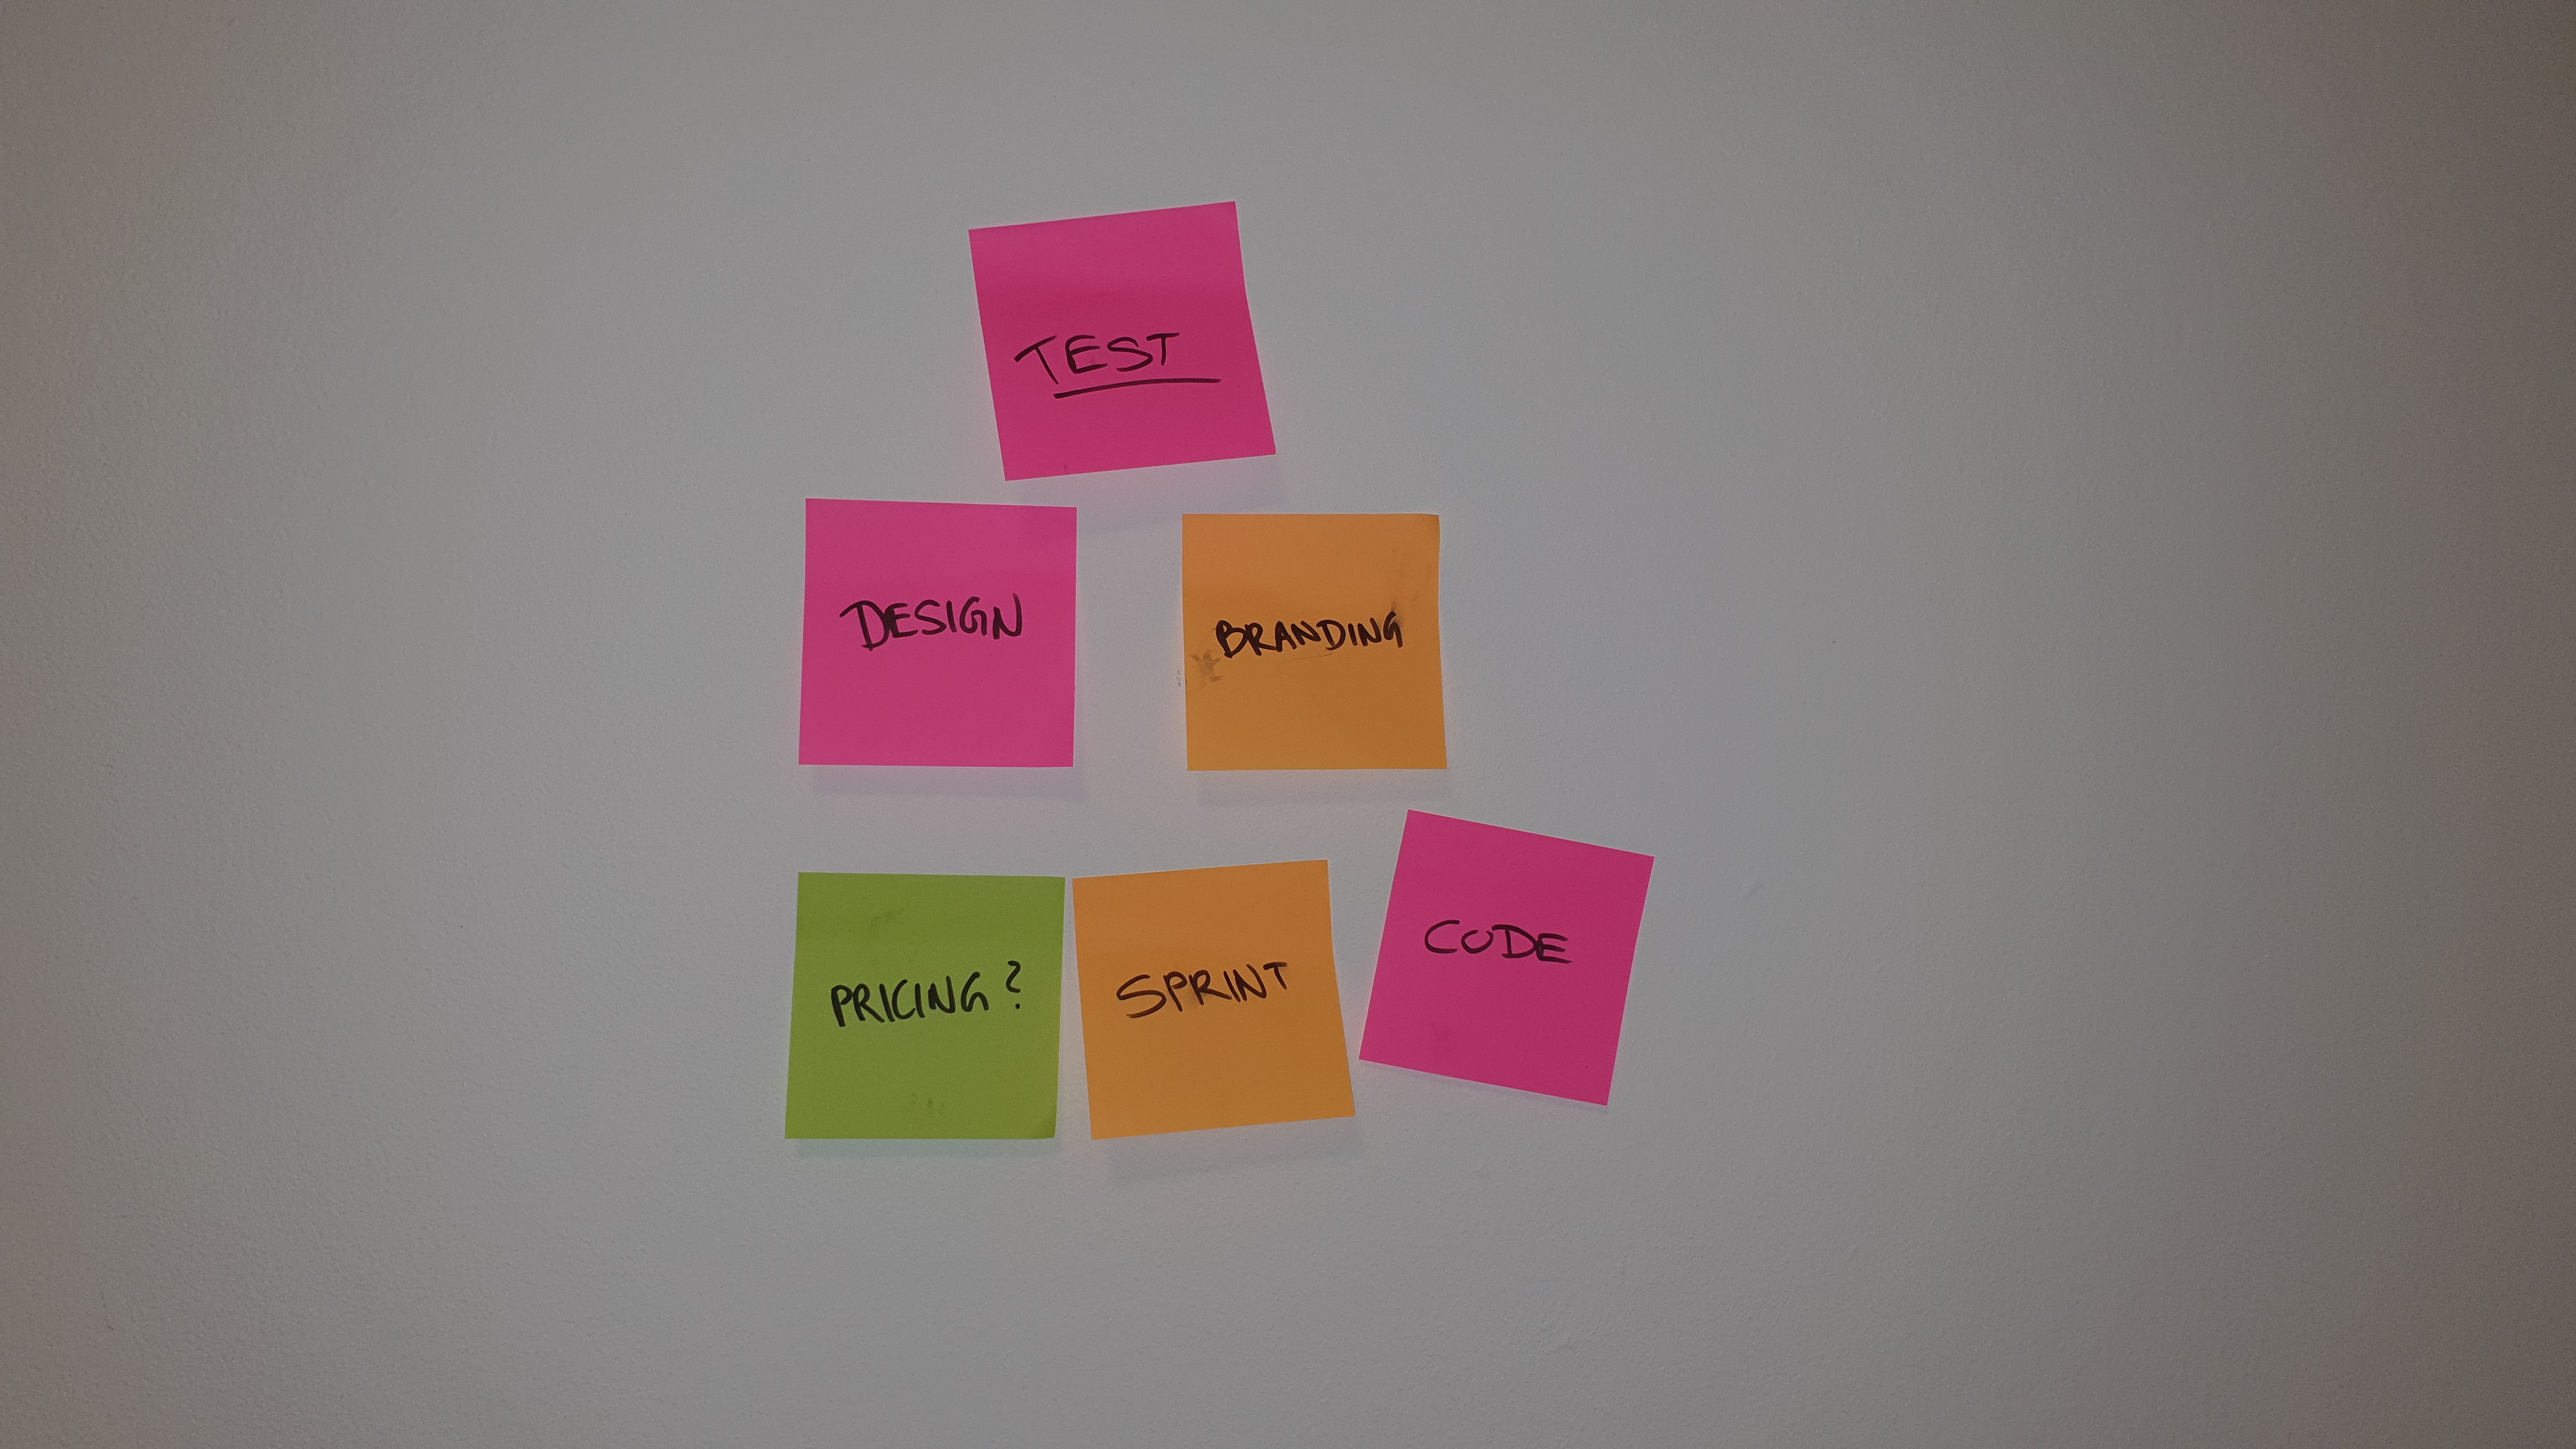 TEST
DESIGN
BRANDING
PRICING?
SPRINT
CODE